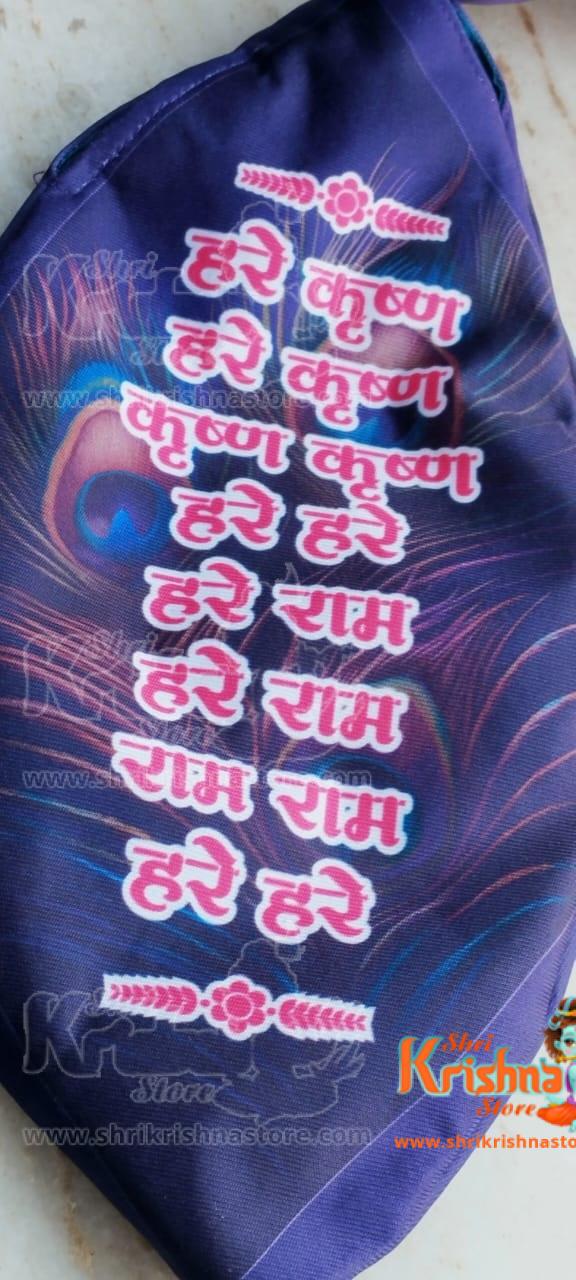 हरे कृष्ण
हरे कृष्ण
कृष्ण कृष्ण
हरे हरे
हरे राम
हरे राम
राम राम
हरे हरे
Shri
Krishna
Store
www.shrikrishnasto
www.shrikrishnastore.com
www.shrikrishnastore.com
www.shrikrishnastore.com